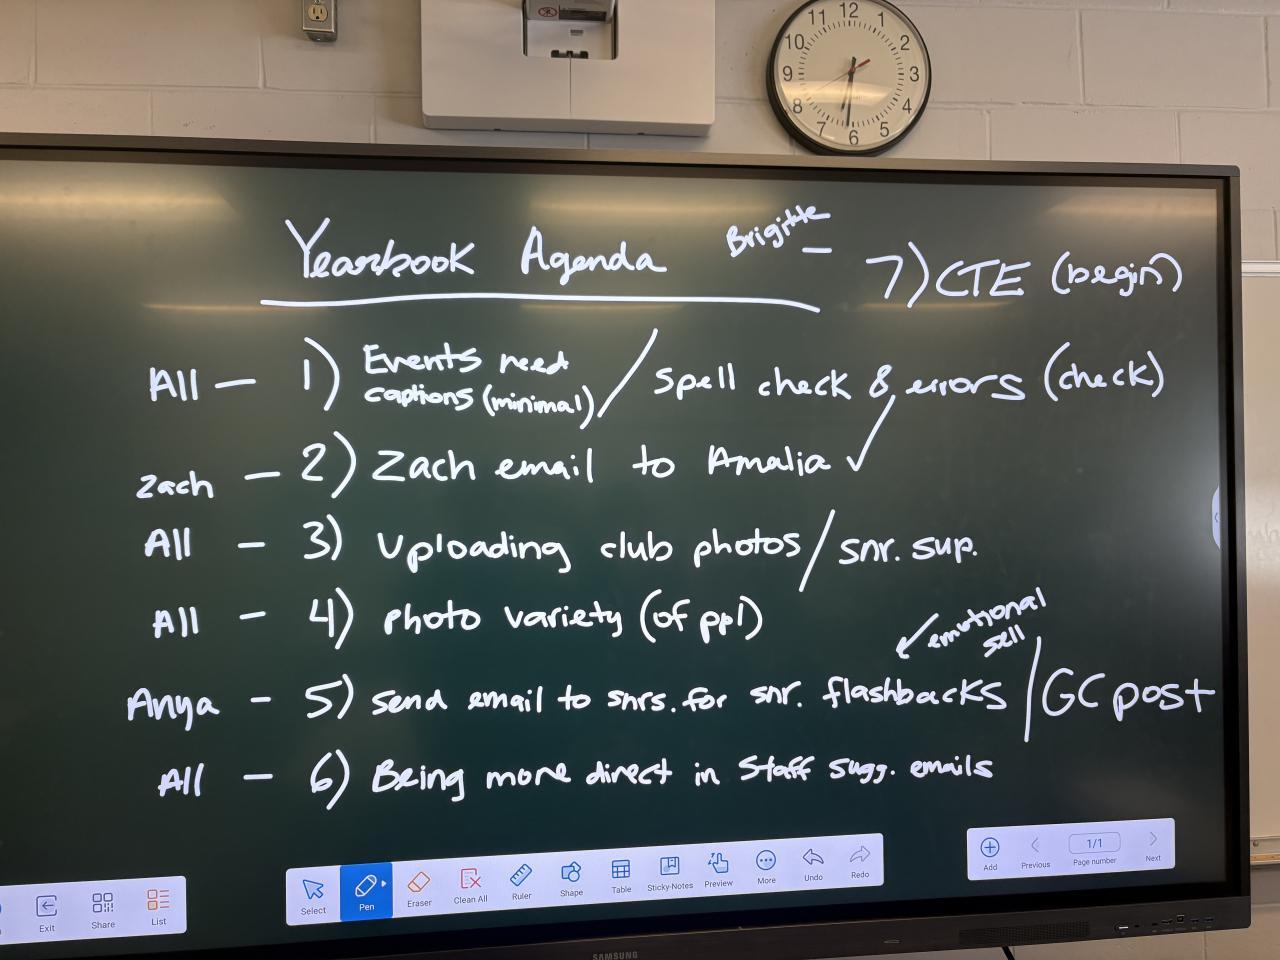 11 12 1
10 2
9 3
8 4
7 6 5
Yearbook Agenda
Brigitte - 7) CTE (begin)
All - 1) Events need captions (minimal) / Spell check & errors (check)
Zach - 2) Zach email to Amalia ✓
All - 3) Uploading club photos / snr. sup.
All - 4) Photo variety (of ppl)
emotional sell
Anya - 5) Send email to snrs. for snr. flashbacks / GC post
All - 6) Being more direct in Staff sugg. emails
Exit Share List
Select Pen Eraser Clean All Ruler Shape Table Sticky-Notes Preview More Undo Redo
Add Previous 1/1 Page number Next
SAMSUNG